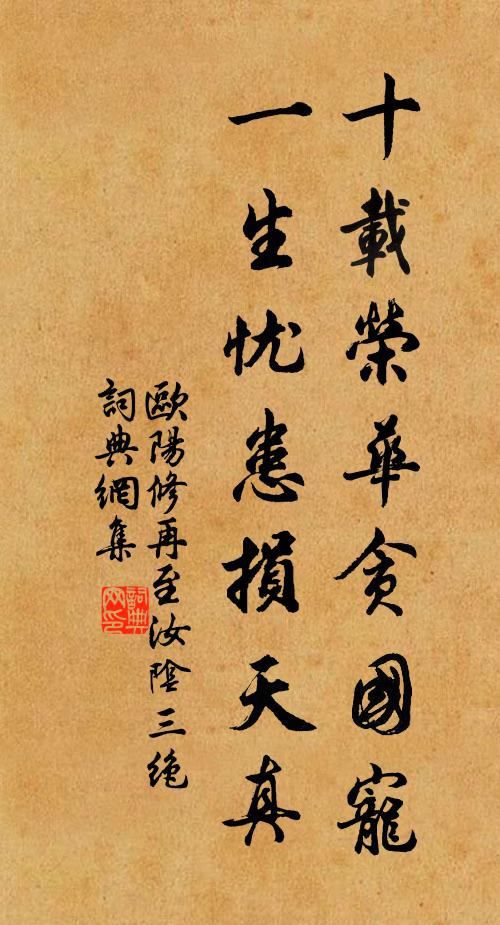 十載榮華貪國寵
一生忧患損天真
歐陽修再至汝陰三絕
詞典網集
詞典网印